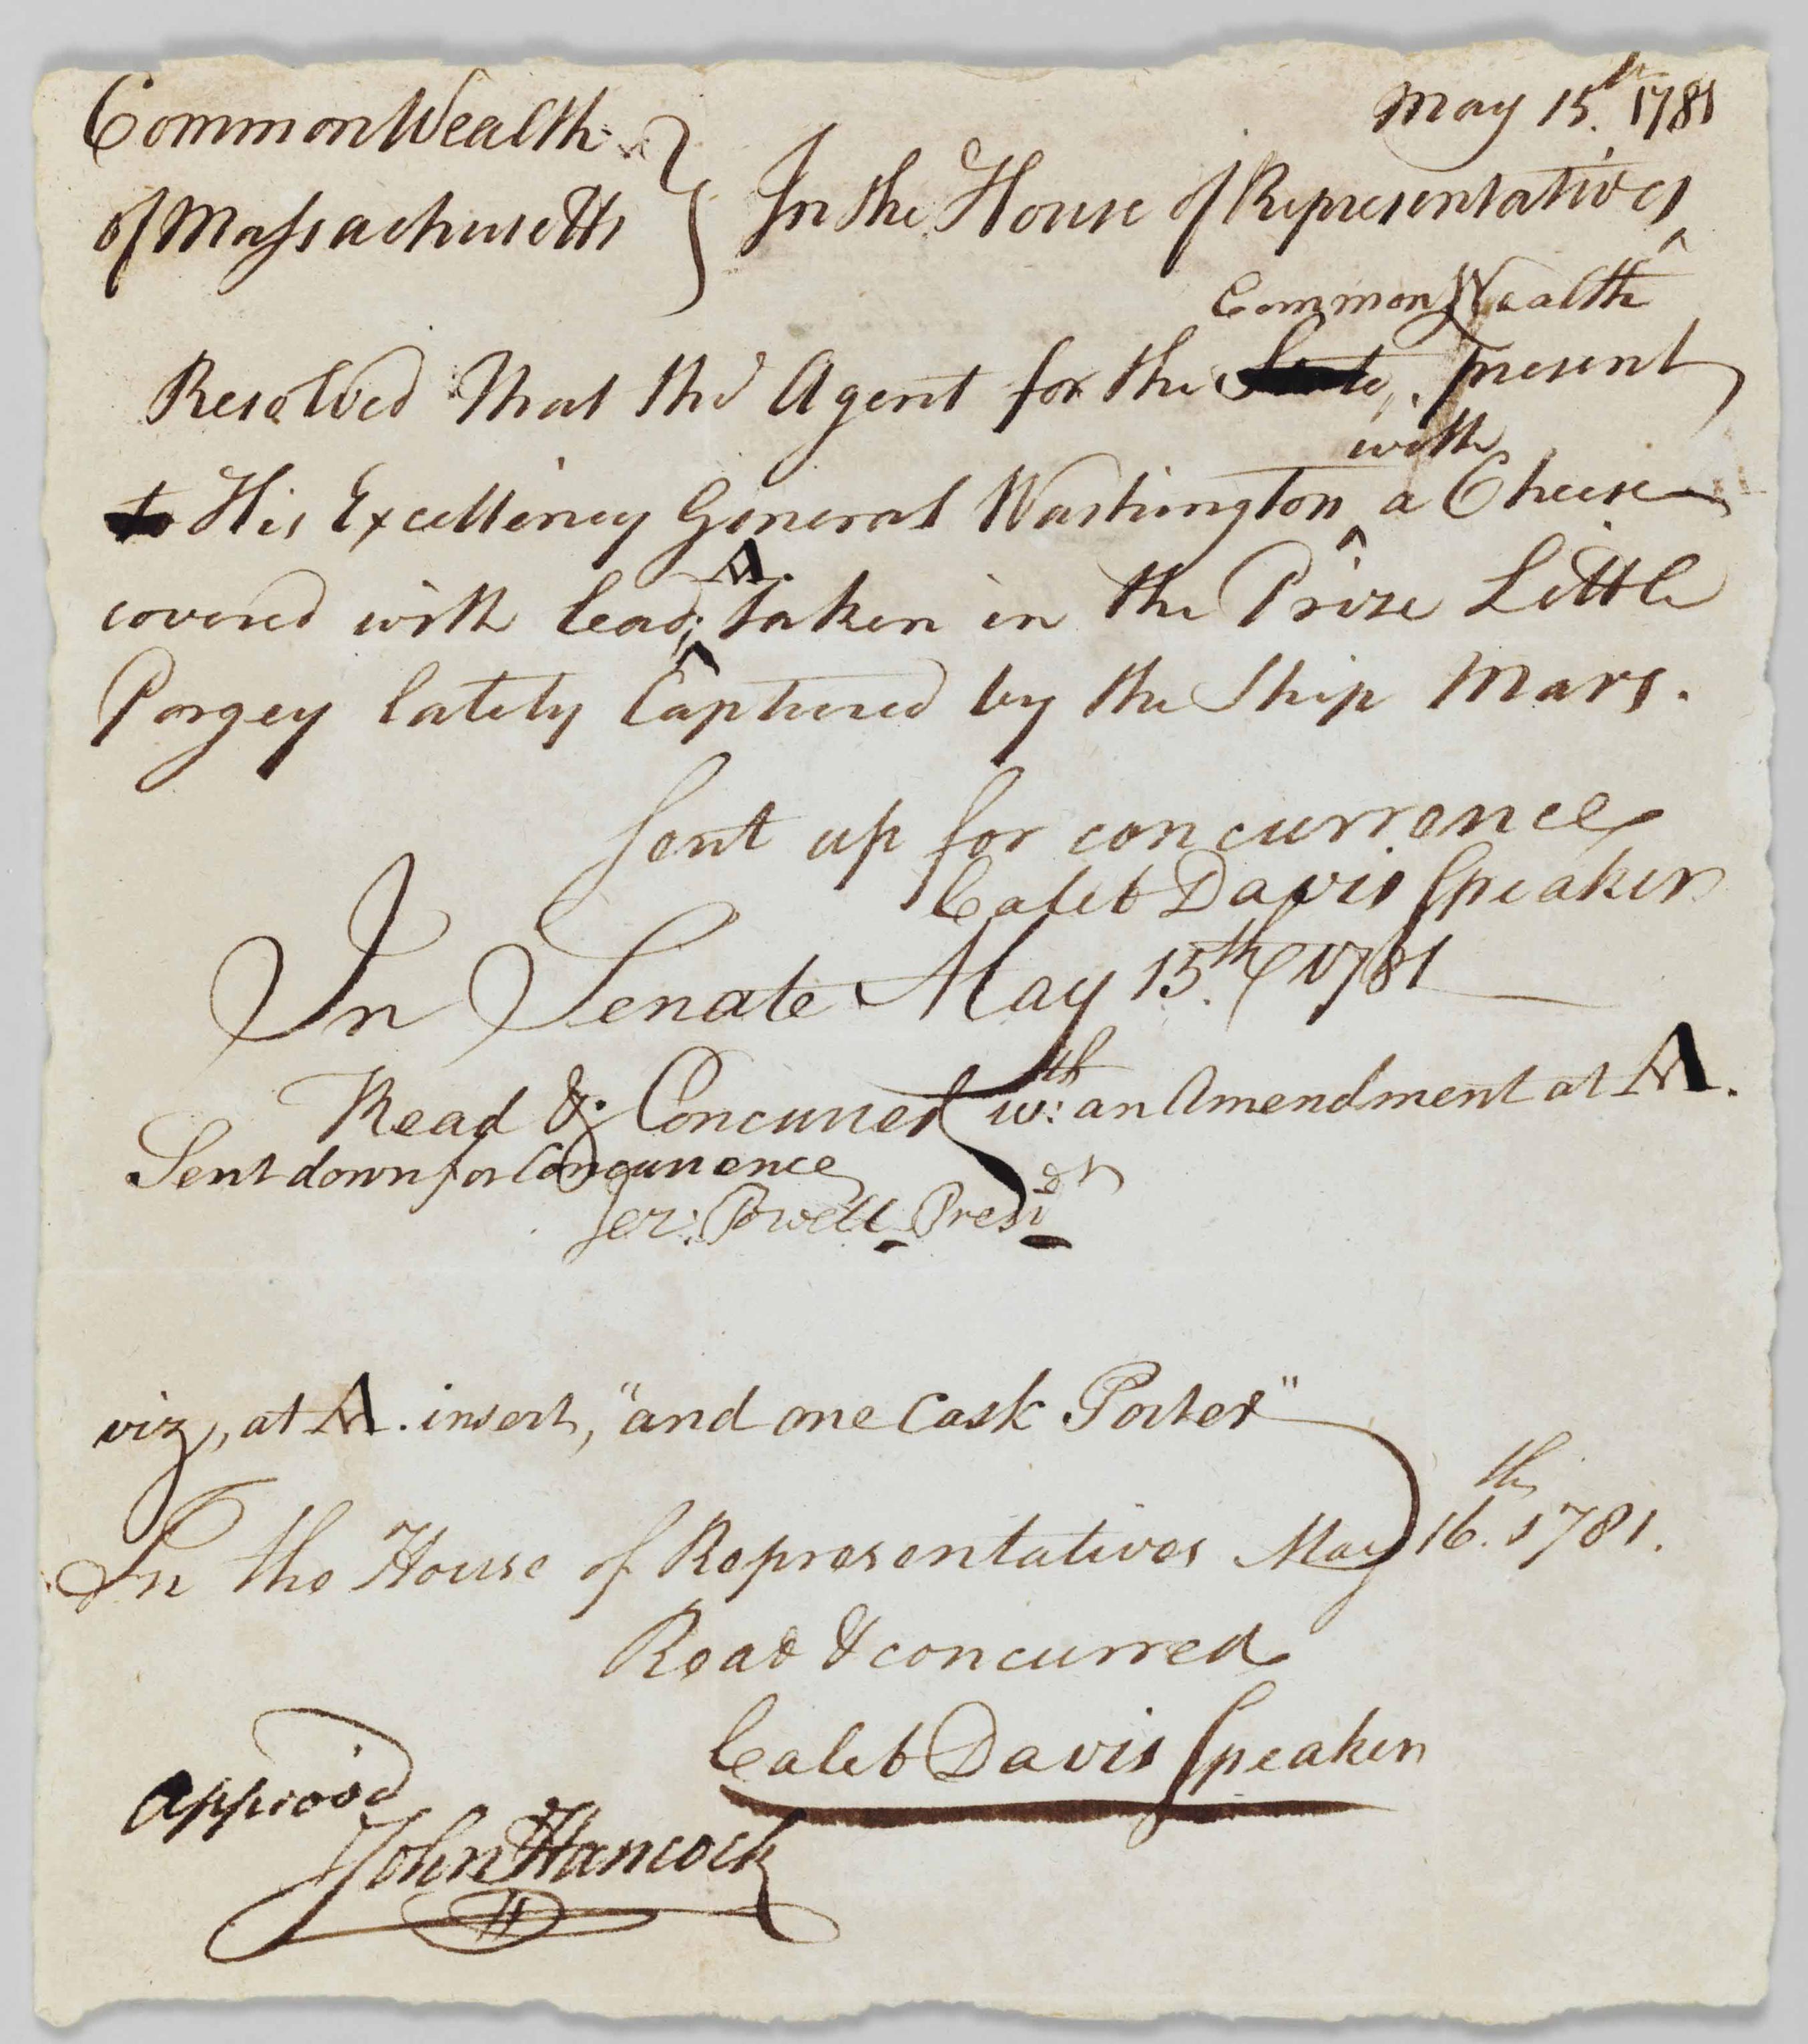 CommonWealth
of Massachusetts } In the House of Representatives
May 15th. 1781
CommonWealth
Resolved That the Agent for the State, present
with
to His Excellency General Washington ^ a Cheese
A.
covered with lead; ^ taken in the Prize Little
Porgey lately Captured by the Ship Mars.
Sent up for concurrence
Caleb Davis Speaker
In Senate May 15th. 1781
Read & Concurred wth: an Amendment at A.
Sent down for Concurrence
Jer: Powell Presidt
viz, at A. insert, "and one Cask Porter"
In the House of Representatives May 16th. 1781.
Read & concurred
Caleb Davis Speaker
Approv'd
John Hancock